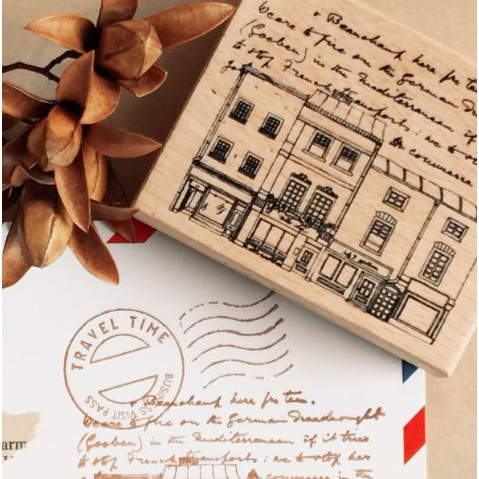 Beauchamp here fr. ten
to fire on the German Dre
(Goeben) in the Mediterranean if
to stop French transports: we to
commence
TRAVEL TIME
BUSINESS VISIT PASS
Beauchamp here fr. ten.
to fire on the German Dreadnought
(Goeben) in the Mediterranean if it tries
to stop French transports: we to stop her
commence in the
arm